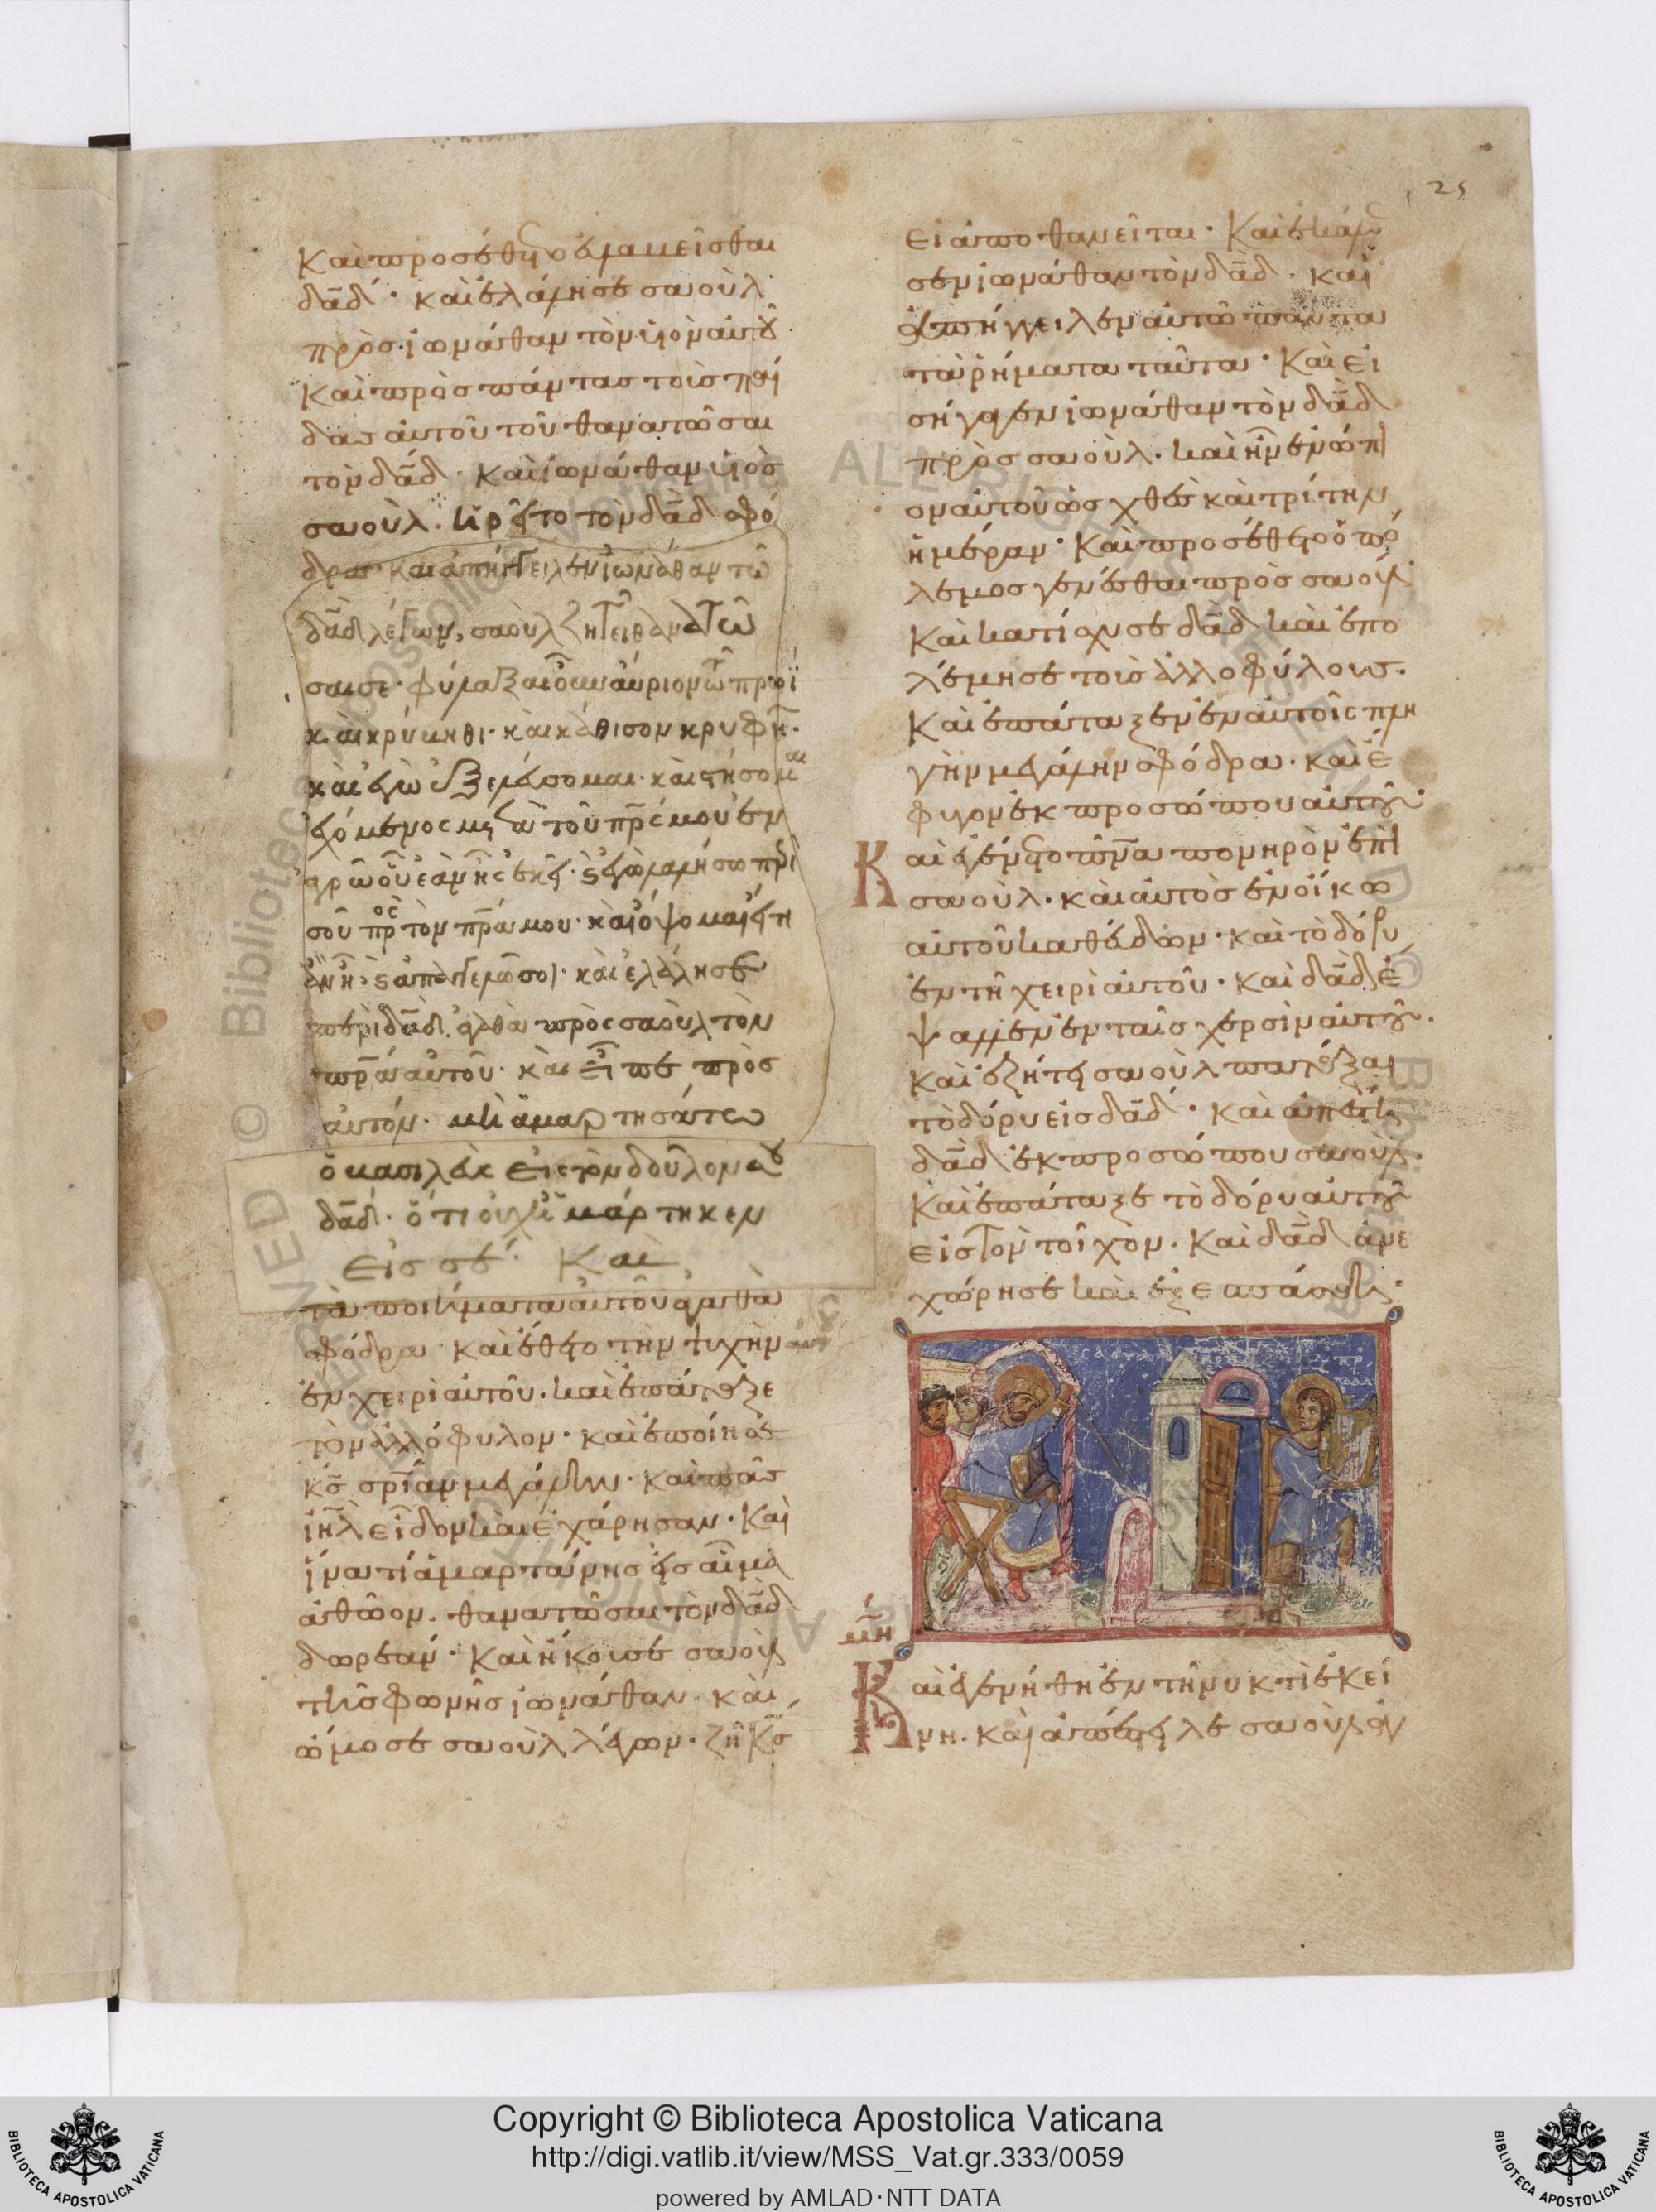 25
Καὶ προσέθετο ἁμαλεῖσθαι
δᾱδ· καὶ ἐλάλησε σαοὺλ
πρὸς ἰωνάθαν τὸν υἱὸν αὐτοῦ
Καὶ πρὸς πάντας τοὺς παῖ
δας αὐτοῦ τοῦ θανατῶσαι
τὸν δᾱδ· Καὶ ἰωνάθαν υἱὸς
σαοὺλ ἡρεῖτο τὸν δᾱδ σφό
δρα· Καὶ ἀπήγγειλεν ἰωνάθαν τῶ
δᾱδ λέγων, σαοὺλ ζητεῖ θανατῶ
σαι σε· φύλαξαι οὖν αὔριον τῶ πρωῒ
καὶ κρύβηθι· καὶ κάθισον κρυφῆ·
καὶ ἐγὼ ἐξελεύσομαι· καὶ στήσομαι
ἐχόμενος τοῦ πρ̄ς μου ἐν
ἀγρῶ οὗ ἐὰν ἦς ἐκεῖ· ἐγὼ λαλήσω περὶ
σοῦ πρὸς τὸν πρ̄α μου· καὶ ὄψομαι ὅτι
ἐὰν ἦ· ἀπαγγελῶ σοι· καὶ ἐλάλησε
περὶ δᾱδ ἀγαθὰ πρὸς σαοὺλ τὸν
πρ̄α αὐτοῦ· καὶ εἶπε πρὸς
αὐτόν· μὴ ἁμαρτησάτω
ὁ βασιλεὺς εἰς τὸν δοῦλον αὐτοῦ
δᾱδ· ὅτι οὐχ ἡμάρτηκεν
εἰς σέ· Καὶ
τὰ ποιήματα αὐτοῦ ἀγαθὰ
σφόδρα· καὶ ἔθετο τὴν ψυχὴν αὐτοῦ
ἐν χειρὶ αὐτοῦ· καὶ ἐπάταξε
τὸν ἀλλόφυλον· καὶ ἐποίησε
κ̄ς σρ̄ίαν μεγάλην· καὶ πᾶς
ιη̄λ εἶδον καὶ ἐχάρησαν· Καὶ
ἵνα τί ἁμαρτάνης εἰς αἷμα
ἀθῶον· θανατῶσαι τὸν δᾱδ
δωρεάν· Καὶ ἤκουσε σαοὺλ
τῆς φωνῆς ἰωνάθαν· καὶ
ὤμοσε σαοὺλ λέγων· ζῆ κ̄ς
εἰ ἀποθανεῖται· Καὶ ἐκάλε
σεν ἰωνάθαν τὸν δᾱδ· καὶ
ἀπήγγειλεν αὐτῶ πάντα
τὰ ῥήματα ταῦτα· Καὶ εἰ
σήγαγεν ἰωνάθαν τὸν δᾱδ
πρὸς σαοὺλ· καὶ ἦν ἐνώπι
ον αὐτοῦ ὡς χθὲς καὶ τρίτην
ἡμέραν· Καὶ προσέθετο ὁ πό
λεμος γενέσθαι πρὸς σαοὺλ
Καὶ κατίσχυσε δᾱδ καὶ ἐπο
λέμησε τοὺς ἀλλοφύλους·
Καὶ ἐπάταξεν ἐν αὐτοῖς πλη
γὴν μεγάλην σφόδρα· καὶ ἔ
φυγον ἐκ προσώπου αὐτοῦ·
Καὶ ἐγένετο πν̄α πονηρὸν ἐπὶ
σαοὺλ· καὶ αὐτὸς ἐν οἴκω
αὐτοῦ καθεύδων· καὶ τὸ δόρυ
ἐν τῆ χειρὶ αὐτοῦ· Καὶ δᾱδ ἔ
ψαλλεν ἐν ταῖς χερσὶν αὐτοῦ·
Καὶ ἐζήτει σαοὺλ πατάξαι
τὸ δόρυ εἰς δᾱδ· Καὶ ἀπέστη
δᾱδ ἐκ προσώπου σαοὺλ·
Καὶ ἐπάταξε τὸ δόρυ αὐτοῦ
εἰς τὸν τοῖχον· Καὶ δᾱδ ἀνε
χώρησε καὶ ἐξεσπάσθη·
Καὶ ἐγενήθη ἐν τῆ νυκτὶ ἐκεί
νη· Καὶ ἀπέστειλε σαοὺλ
Copyright © Biblioteca Apostolica Vaticana
http://digi.vatlib.it/view/MSS_Vat.gr.333/0059
powered by AMLAD·NTT DATA
BIBLIOTECA APOSTOLICA VATICANA
BIBLIOTECA APOSTOLICA VATICANA